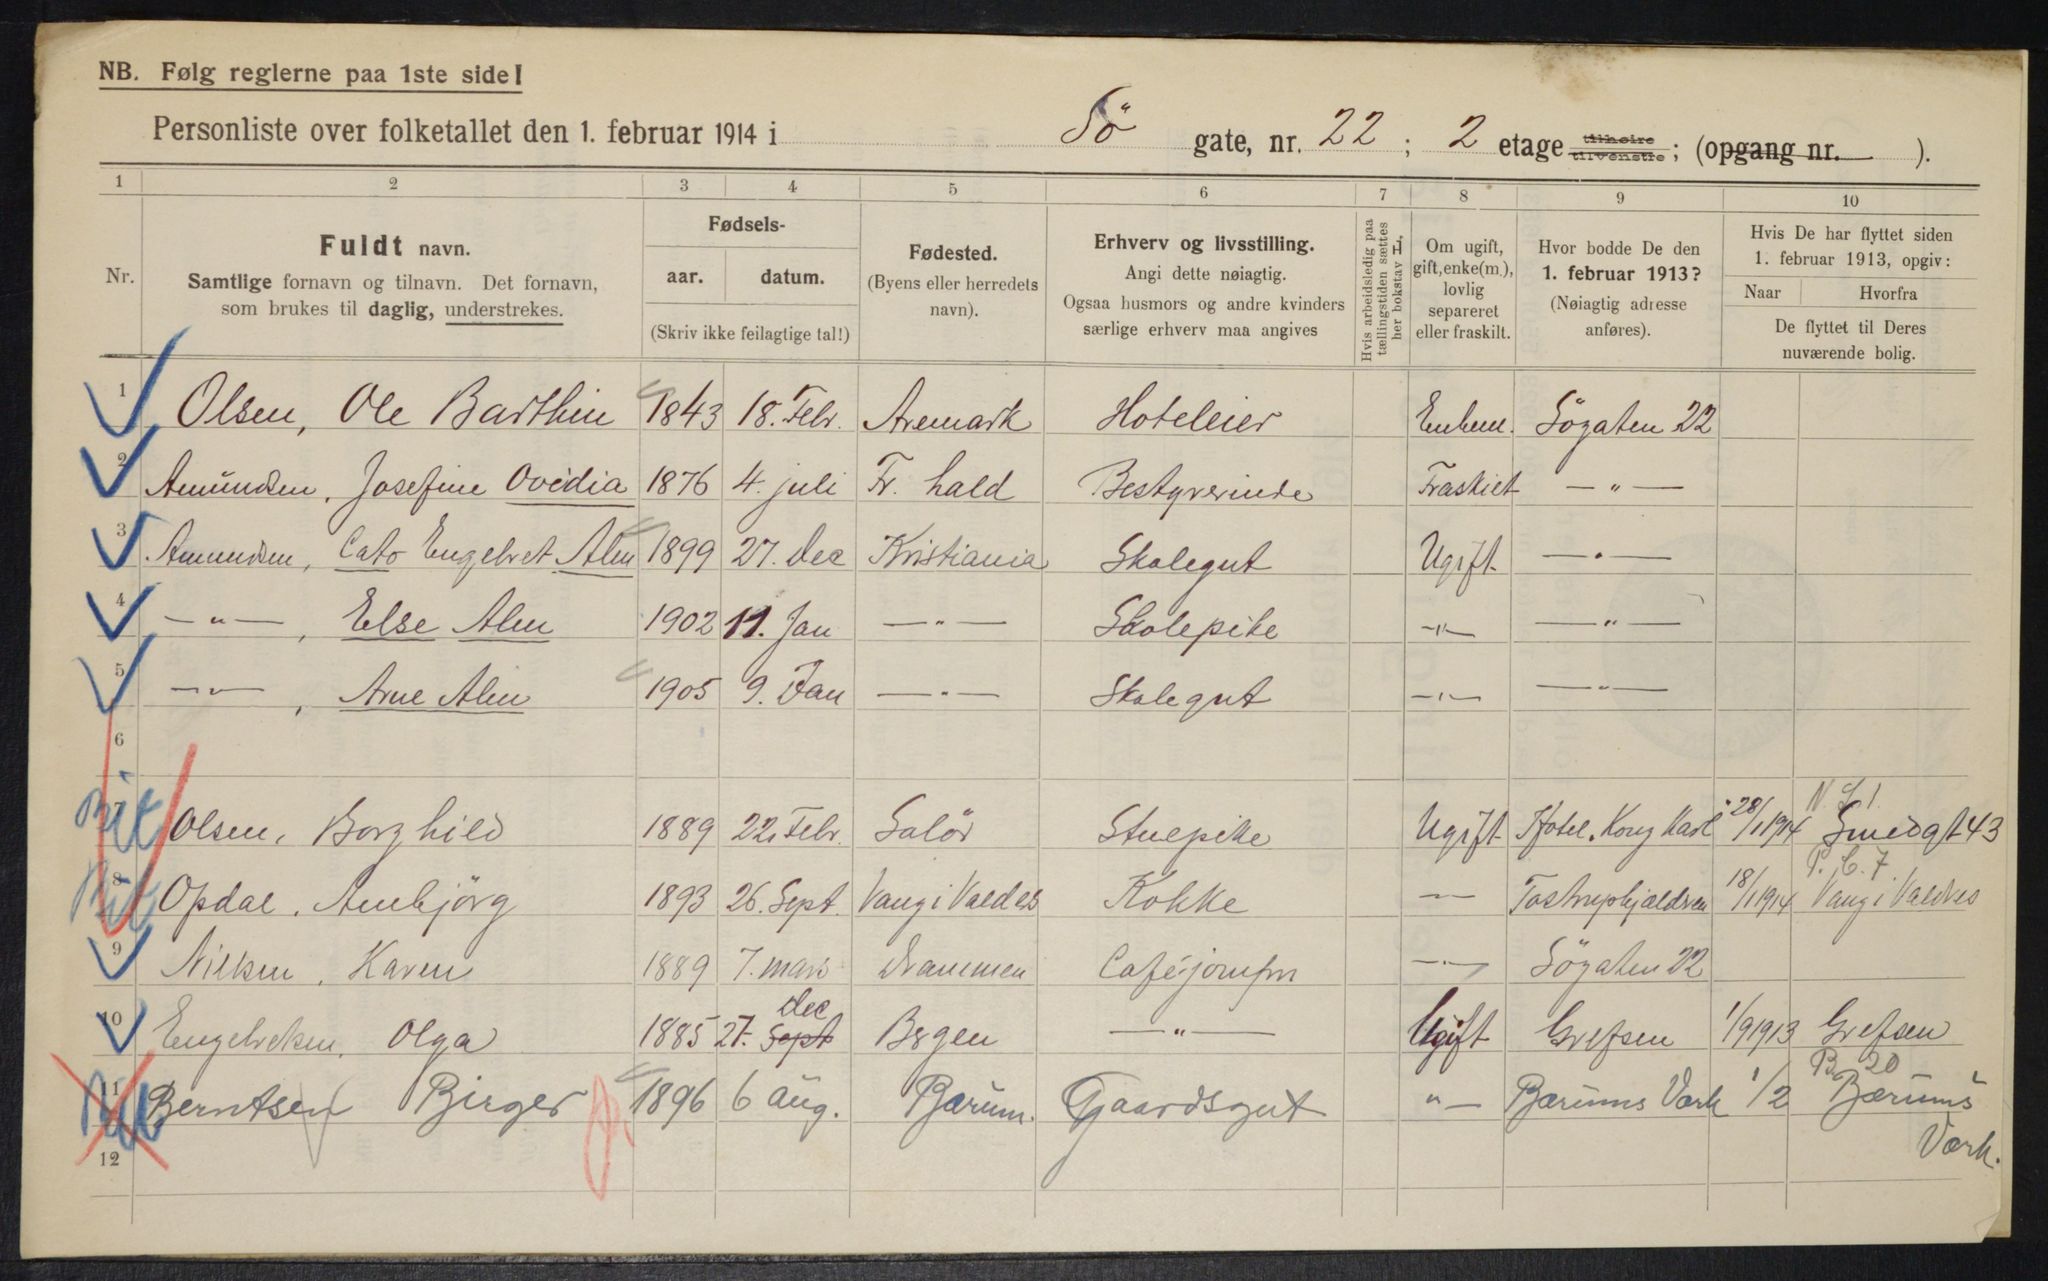 NB. Følg reglerne paa 1ste side!
Personliste over folketallet den 1. februar 1914 i Sö gate, nr. 22 ; 2 etage tilhøire tilvenstre ; (opgang nr. ).
1 2 3 4 5 6 7 8 9 10
Nr.
Fuldt navn.
Samtlige fornavn og tilnavn. Det fornavn,
som brukes til daglig, understrekes.
Fødsels-
aar. datum.
(Skriv ikke feilagtige tal!)
Fødested.
(Byens eller herredets
navn).
Erhverv og livsstilling.
Angi dette nøiagtig.
Ogsaa husmors og andre kvinders
særlige erhverv maa angives
Hvis arbeidsledig paa
tællingstiden sættes
her bokstav L.
Om ugift,
gift, enke(m.),
lovlig
separeret
eller fraskilt.
Hvor bodde De den
1. februar 1913?
(Nøiagtig adresse
anføres).
Hvis De har flyttet siden
1. februar 1913, opgiv:
Naar Hvorfra
De flyttet til Deres
nuværende bolig.
1 Olsen, Ole Barthin 1843 18. Febr. Aremark Hoteleier Enkem. Sögaten 22
2 Amundsen, Josefine Ovidia 1876 4. juli Fr. hald Bestyrerinde Fraskiet — " —
3 Amundsen, Cato Engebret Alm 1899 27. Dec Kristiania Skolegut Ugift — " —
4 — " —, Else Alm 1902 11. Jan — " — Skolepike — " — — " —
5 — " —, Arne Alm 1905 9. Jan — " — Skolegut — " — — " —
6
N 41.
7 Olsen, Borghild 1889 22. Febr. Solör Stuepike Ugift Hotel Kong Karl 28/1 1914 Smedgt 43
P. C. 7
8 Opdal, Ambjörg 1893 26. Sept. Vang i Valdres Kokke — " — 18/1 1914 Vang i Valdres
9 Nilsen, Karen 1889 7. mars Drammen Caféjomfru — " — Sögaten 22
Dec
10 Engebretsen, Olga 1885 27. Sept Bergen — " — Ugift Grefsen 1/9 1913 Grefsen
B 20
11 Berntsen Birger 1896 6 aug. Bærum. Gaardsgut " — Bærums Værk 1/2 Bærums
Værk.
12